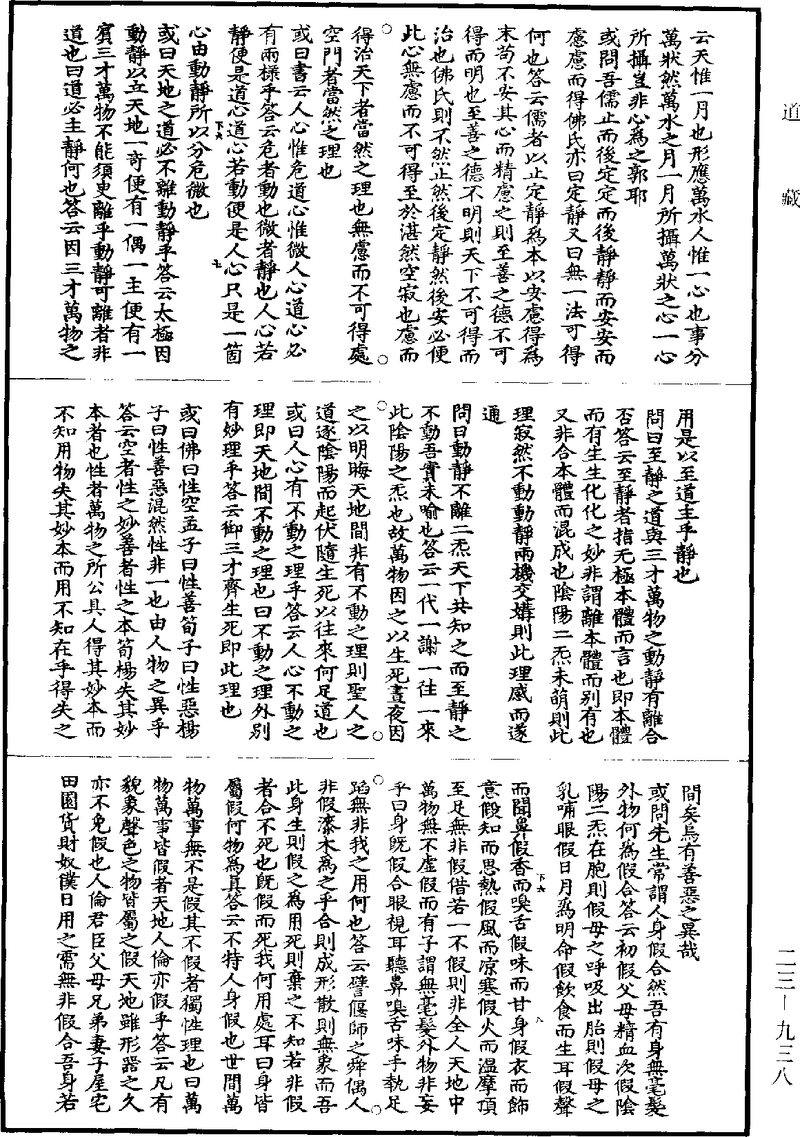 道藏
云天惟一月也形應萬水人惟一心也事分
萬狀然萬水之月一月所攝萬狀之心一心
所攝豈非心為之郭耶
或問吾儒止而後定定而後靜靜而安安而
慮慮而得佛氏亦曰定靜又曰無一法可得
何也答云儒者以止定靜為本以安慮得為
末苟不安其心而精慮之則至善之德不可
得而明也至善之德不明則天下不可得而
治也佛氏則不然止然後定靜然後安必便
此心無慮而不可得至於湛然空寂也慮而
得治天下者當然之理也無慮而不可得處
空門者當然之理也
或曰書云人心惟危道心惟微人心道心必
有兩樣乎答云危者動也微者靜也人心若
靜便是道心道心若動便是人心只是一箇
心由動靜所以分危微也
或曰天地之道必不離動靜乎答云太極因
動靜以立天地一奇便有一偶一主便有一
賓三才萬物不能須臾離乎動靜可離者非
道也曰道必主靜何也答云因三才萬物之
用是以至道主乎靜也
問曰至靜之道與三才萬物之動靜有離合
否答云至靜者指无極本體而言也即本體
而有生生化化之妙非謂離本體而別有也
又非合本體而混成也陰陽二炁未萌則此
理寂然不動動靜兩機交媾則此理感而遂
通
問曰動靜不離二炁天下共知之而至靜之
不動吾實未喻也答云一代一謝一往一來
此陰陽之炁也故萬物因之以生死晝夜因
之以明晦天地間非有不動之理則聖人之
道逐陰陽而起伏隨生死以往來何足道也
或曰人心有不動之理乎答云人心不動之
理即天地間不動之理也曰不動之理外別
有妙理乎答云御三才齊生死即此理也
或曰佛曰性空孟子曰性善荀子曰性惡楊
子曰性善惡混然性非一也由人物之異乎
答云空者性之妙善者性之本荀楊失其妙
本者也性者萬物之所公具人得其妙本而
不知用物失其妙本而用不知在乎得失之
間矣烏有善惡之異哉
或問先生常謂人身假合然吾有身無毫髮
外物何為假合答云初假父母精血次假陰
陽二炁在胞則假母之呼吸出胎則假母之
乳哺眼假日月為明命假飲食而生耳假聲
而聞鼻假香而嗅舌假味而甘身假衣而飾
意假知而思熱假風而涼寒假火而溫摩頂
至足無非假借若一不假則非全人天地中
萬物無不虛假而有子謂無毫髮外物非妄
乎曰身既假合眼視耳聽鼻嗅舌味手執足
蹈無非我之用何也答云譬偃師之舞偶人
非假漆木為之乎合則成形散則無象而吾
此身生則假之為用死則棄之不知若非假
者合不死也既假而死我何用處耳曰身皆
屬假何物為真答云不特人身假也世間萬
物萬事無不是假其不假者獨性理也曰萬
物萬事皆假者天地人倫亦假乎答云凡有
貌象聲色之物皆屬之假天地雖形器之久
亦不免假也人倫君臣父母兄弟妻子屋宅
田園貨財奴僕日用之需無非假合吾身若
二三—九三八